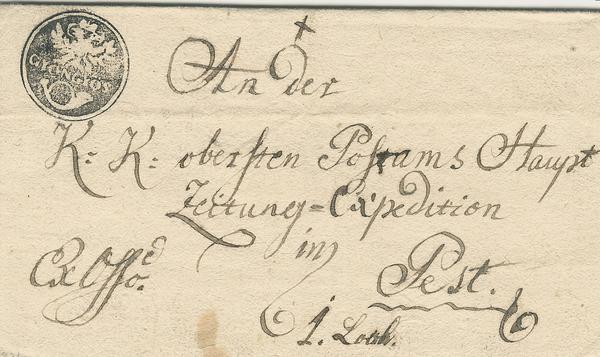 An der
K: K: obersten Postams Haupt
Zeitung=Expedition
in
Pest.
Ex Offo.
1. Loth.